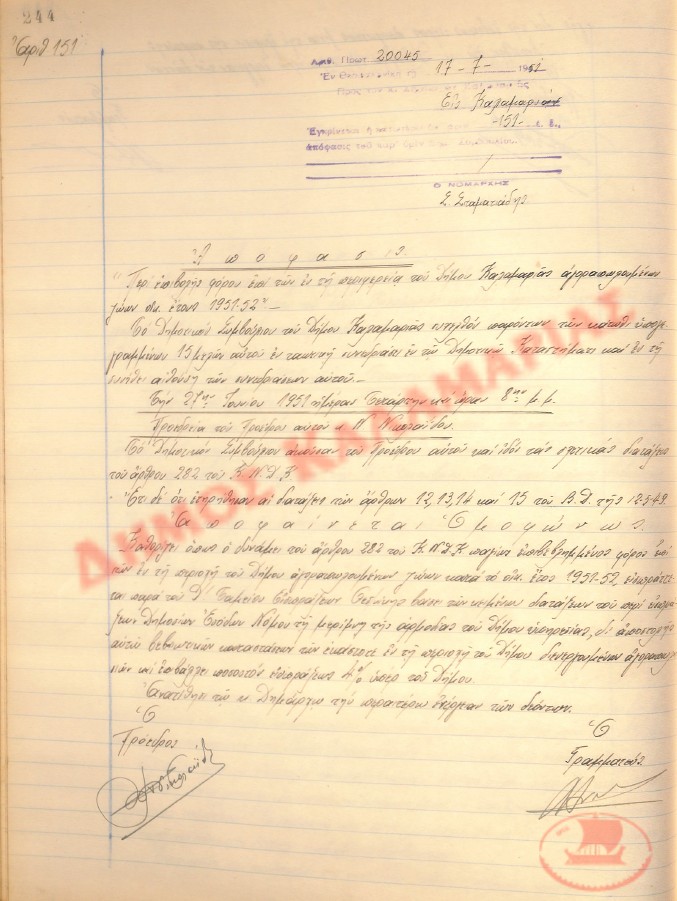 244
Ἀριθ 151
Αριθ. Πρωτ. 20045
Ἐν Θεσσαλονίκῃ τῇ 17-7-1951
Πρὸς τὸν κ. Δήμαρχον
Εἰς Καλαμαριάν
Ἐγκρίνεται ἡ -151-
ἀπόφασις τοῦ
Ο ΝΟΜΑΡΧΗΣ
Σ. Σταματιάδης
Ἀπόφασις
"Περὶ ἐπιβολῆς φόρου ἐπὶ τῶν ἐν τῇ περιφερείᾳ τοῦ Δήμου Καλαμαριᾶς ἀγοραπωλουμένων
ζώων οἰκ. ἔτους 1951-52"-
Τὸ Δημοτικὸν Συμβούλιον τοῦ Δήμου Καλαμαριᾶς συνελθὸν παρόντων τῶν κάτωθι ὑπογε-
γραμμένων 15 μελῶν αὐτοῦ ἐν τακτικῇ συνεδριάσει ἐν τῷ Δημοτικῷ Καταστήματι καὶ ἐν τῇ
συνήθει αἰθούσῃ τῶν συνεδριάσεων αὐτοῦ.-
Τὴν 27ην Ἰουνίου 1951 ἡμέραν Τετάρτην καὶ ὥραν 8ην μ.μ.
Προεδρίᾳ τοῦ Προέδρου αὐτοῦ κ. Ν Νικολαΐδου.
Τὸ Δημοτικὸν Συμβούλιον ἀκούσαν τοῦ Προέδρου αὐτοῦ καὶ ἰδὸν τὰς σχετικὰς διατάξεις
τοῦ ἄρθρου 282 τοῦ Κ.Ν.Δ.Κ
Ἔτι δὲ ὅτι ἐτηρήθησαν αἱ διατάξεις τῶν ἄρθρων 12, 13, 14 καὶ 15 τοῦ Β.Δ. τῆς 12-5-49.
Ἀποφαίνεται Ὁμοφώνως.
Καθορίζει ὅπως ὁ δυνάμει τοῦ ἄρθρου 282 τοῦ Κ.Ν.Δ.Κ παγίως ἐπιβεβλημένος φόρος ἐπὶ
τῶν ἐν τῇ περιοχῇ τοῦ Δήμου ἀγοραπωλουμένων ζώων κατὰ τὸ οἰκ. ἔτος 1951-52 εἰσπράττε-
ται παρὰ τοῦ Δ. Ταμείου Εἰσπράξεων Θεσ/νίκης βάσει τῶν κειμένων διατάξεων τοῦ περὶ εἰσπρά-
ξεων Δημοσίων Ἐσόδων Νόμου τῇ μερίμνῃ τῆς ἁρμοδίας τοῦ Δήμου ὑπηρεσίας,
αὐτῶν βεβαιωτικῶν καταστάσεων τῶν ἑκάστοτε ἐν τῇ περιοχῇ τοῦ Δήμου διενεργουμένων ἀγοραπωλη-
σιῶν καὶ ἐπιβάλλει ποσοστὸν εἰσπράξεως 4% ὑπὲρ τοῦ Δήμου.
Ἀνατίθησι τῷ κ. Δημάρχῳ τὴν περαιτέρω ἐνέργειαν τῶν δεόντων.
Ὁ
Πρόεδρος
Ὁ
Γραμματεύς
ΔΗΜΟΣ ΚΑΛΑΜΑΡΙΑΣ